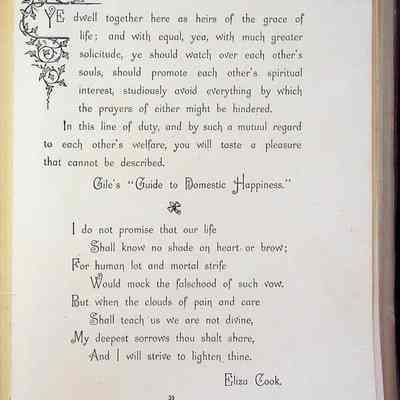 YE dwell together here as heirs of the grace of
life; and with equal, yea, with much greater
solicitude, ye should watch over each other's
souls, should promote each other's spiritual
interest, studiously avoid everything by which
the prayers of either might be hindered.
In this line of duty, and by such a mutual regard
to each other's welfare, you will taste a pleasure
that cannot be described.
Gile's "Guide to Domestic Happiness."
I do not promise that our life
Shall know no shade on heart or brow;
For human lot and mortal strife
Would mock the falsehood of such vow.
But when the clouds of pain and care
Shall teach us we are not divine,
My deepest sorrows thou shalt share,
And I will strive to lighten thine.
Eliza Cook.